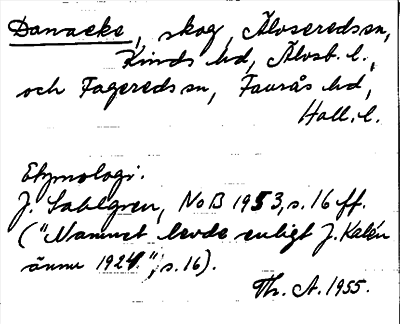 Danaeke, skog, Älvseredssn,
Kinds hd, Älvsb. l.,
och Fagereds sn, Faurås hd,
Hall. l.
Etymologi.
J. Sahlgren, NoB 1953, s. 16 ff.
("Namnet levde enligt J. Kalén
ännu 1924.", s. 16).
Th. A. 1955.